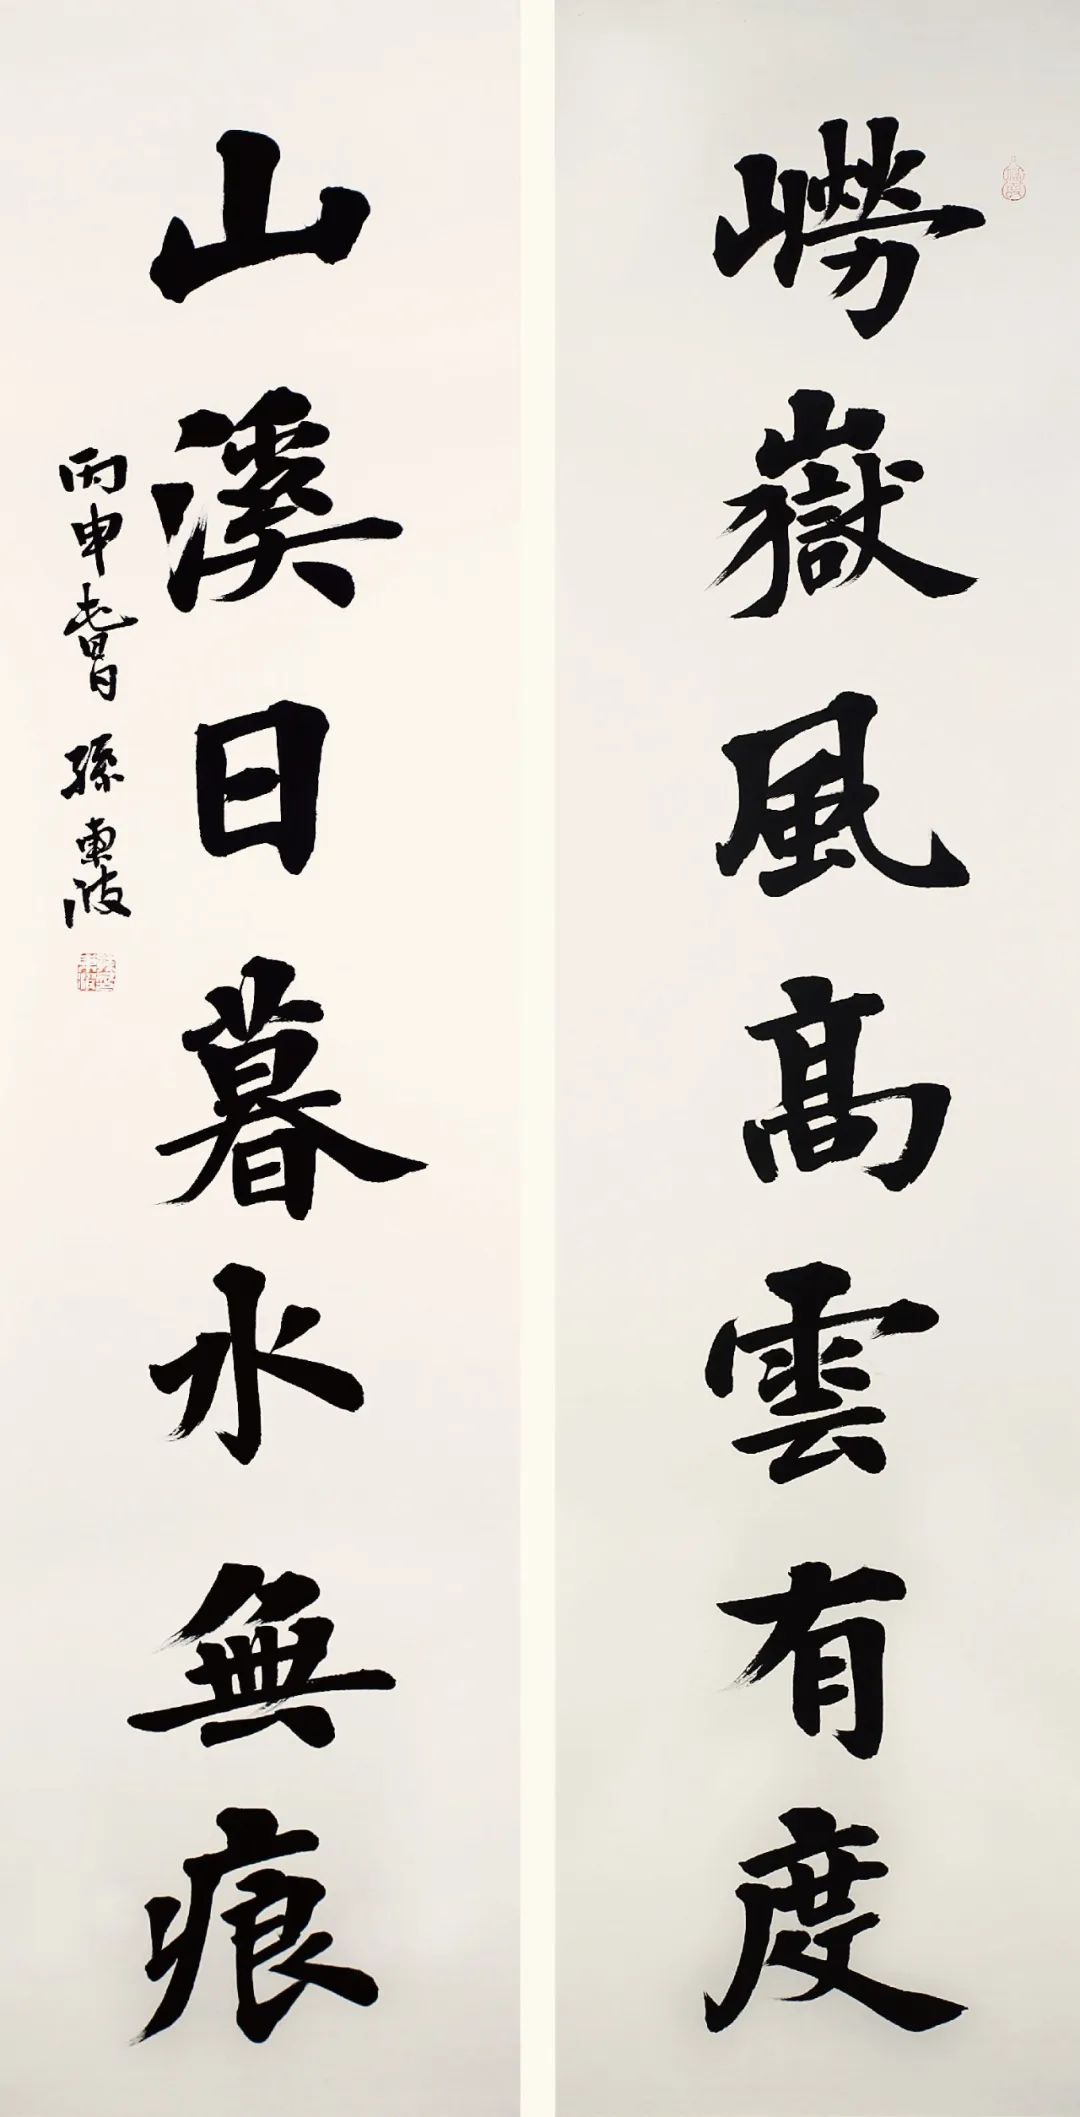 嶗嶽風高雲有度
山溪日暮水無痕
丙申春月孫東波